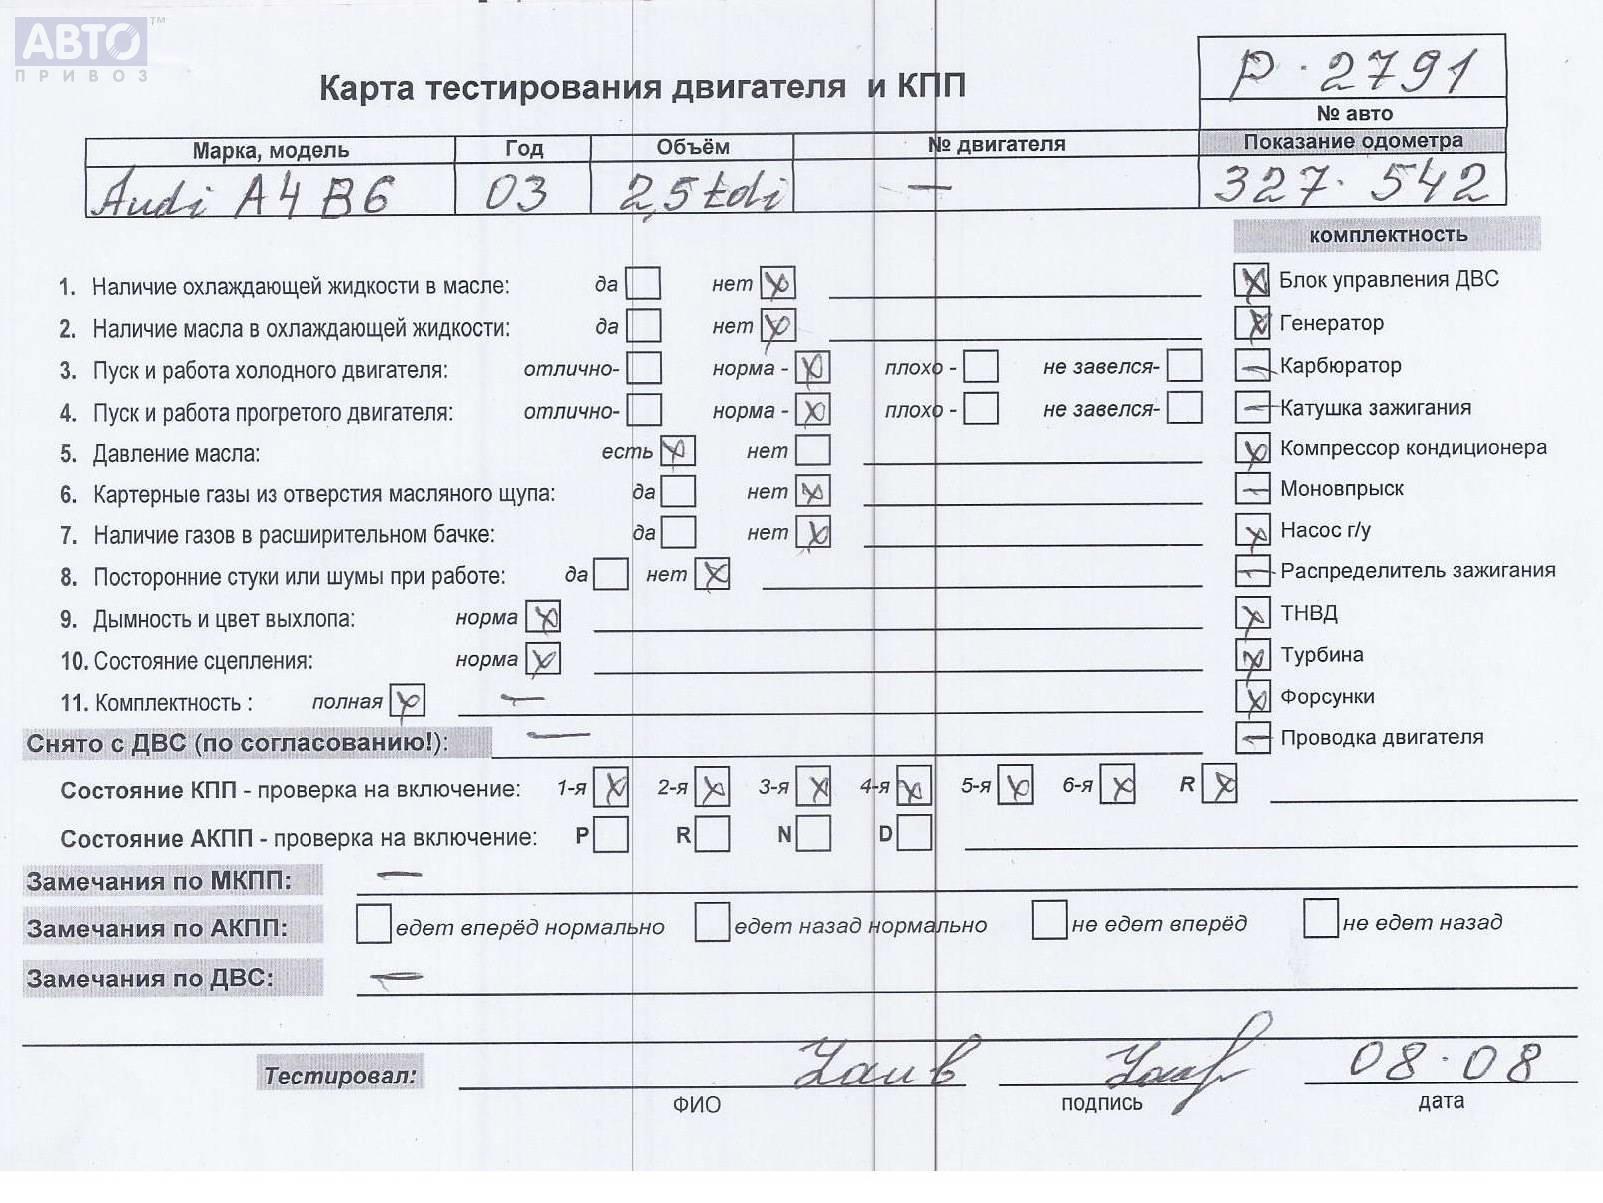 АВТО™
ПРИВОЗ
Карта тестирования двигателя и КПП
Р · 2791
№ авто
Марка, модель Год Объём № двигателя Показание одометра
Audi A4 B6 03 2,5 tdi — 327· 542
комплектность
1. Наличие охлаждающей жидкости в масле: да нет X
X Блок управления ДВС
2. Наличие масла в охлаждающей жидкости: да нет X
X Генератор
3. Пуск и работа холодного двигателя: отлично- норма - X плохо - не завелся-
— Карбюратор
4. Пуск и работа прогретого двигателя: отлично- норма - X плохо - не завелся-
— Катушка зажигания
5. Давление масла: есть X нет
X Компрессор кондиционера
6. Картерные газы из отверстия масляного щупа: да нет X
— Моновпрыск
7. Наличие газов в расширительном бачке: да нет X
X Насос г/у
8. Посторонние стуки или шумы при работе: да нет X
— Распределитель зажигания
9. Дымность и цвет выхлопа: норма X
X ТНВД
10. Состояние сцепления: норма X
X Турбина
11. Комплектность : полная X —
X Форсунки
Снято с ДВС (по согласованию!): —
— Проводка двигателя
Состояние КПП - проверка на включение: 1-я X 2-я X 3-я X 4-я X 5-я X 6-я X R X
Состояние АКПП - проверка на включение: P R N D
Замечания по МКПП: —
Замечания по АКПП: едет вперёд нормально едет назад нормально не едет вперёд не едет назад
Замечания по ДВС: —
Тестировал: 08·08
ФИО подпись дата